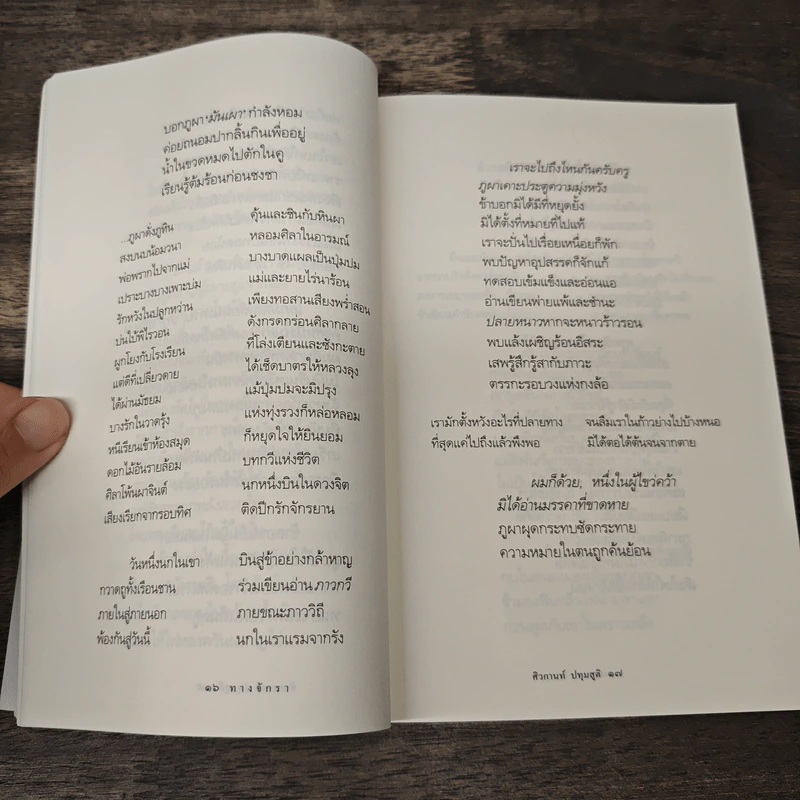 บอกภูผา 'มันเผา' กำลังหอม
ค่อยถนอมปากลิ้นกินเพื่ออยู่
น้ำในขวดหมดไปตักในคู
เรียนรู้ต้มร้อนก่อนชงชา
...ภูผาดั่งภูหิน คุ้นและชินกับหินผา
สงบนบน้อมวนา หลอมศิลาในอารมณ์
พ่อพรากไปจากแม่ บางบาดแผลเป็นปุ่มปม
เปราะบางบางเพาะบ่ม แม่และยายไร่นาร้อน
รักหวังในปลูกหว่าน เพียงทอสานเสียงพร่ำสอน
บ่นใบ้พิไรวอน ดังกรดกร่อนศิลากลาย
ผูกโยงกับโรงเรียน ที่โล่งเตียนและซังกะตาย
แต่ดีที่เปลี่ยวดาย ได้เช็ดบาตรให้หลวงลุง
ได้ผ่านมัธยม แม้ปุ่มปมจะมีปรุง
บางรักในวาดรุ้ง แห่งทุ่งรวงก็หล่อหลอม
หนีเรียนเข้าห้องสมุด ก็หยุดใจให้ยินยอม
ดอกไม้อันรายล้อม บทกวีแห่งชีวิต
ศิลาโพ้นผาจินต์ นกหนึ่งบินในดวงจิต
เสียงเรียกจากรอบทิศ ติดปีกรักจักรยาน
วันหนึ่งนกในเขา บินสู่ข้าอย่างกล้าหาญ
กวาดถูทั้งเรือนชาน ร่วมเขียนอ่าน ภาวกวี
ภายในสู่ภายนอก ภายขณะภาววิถี
พ้องกันสู่วันนี้ นกในเราแรมจากรัง
๑๖ ทางจักรา
เราจะไปถึงไหนกันครับครู
ภูผาเคาะประตูความมุ่งหวัง
ข้าบอกมิได้มีที่หยุดยั้ง
มิได้ตั้งที่หมายที่ไปแท้
เราจะปั่นไปเรื่อยเหนื่อยก็พัก
พบปัญหาอุปสรรคก็จักแก้
ทดสอบเข้มแข็งและอ่อนแอ
อ่านเขียนพ่ายแพ้และชำนะ
ปลายหนาวหากจะหนาวร้าวรอน
พบแล้งเผชิญร้อนอิสระ
เสพรู้สึกรู้สากับภาวะ
ตรรกะรอบวงแห่งกงล้อ
เรามักตั้งหวังอะไรที่ปลายทาง จนลืมเราในก้าวย่างไปบ้างหนอ
ที่สุดแค่ไปถึงแล้วพึงพอ มิได้ตอได้ต้นจนจากตาย
ผมก็ด้วย, หนึ่งในผู้ไขว่คว้า
มิได้อ่านมรรคาที่ขาดหาย
ภูผาผุดกระทบซัดกระทาย
ความหมายในตนถูกค้นย้อน
ศิวกานท์ ปทุมสูติ ๑๗